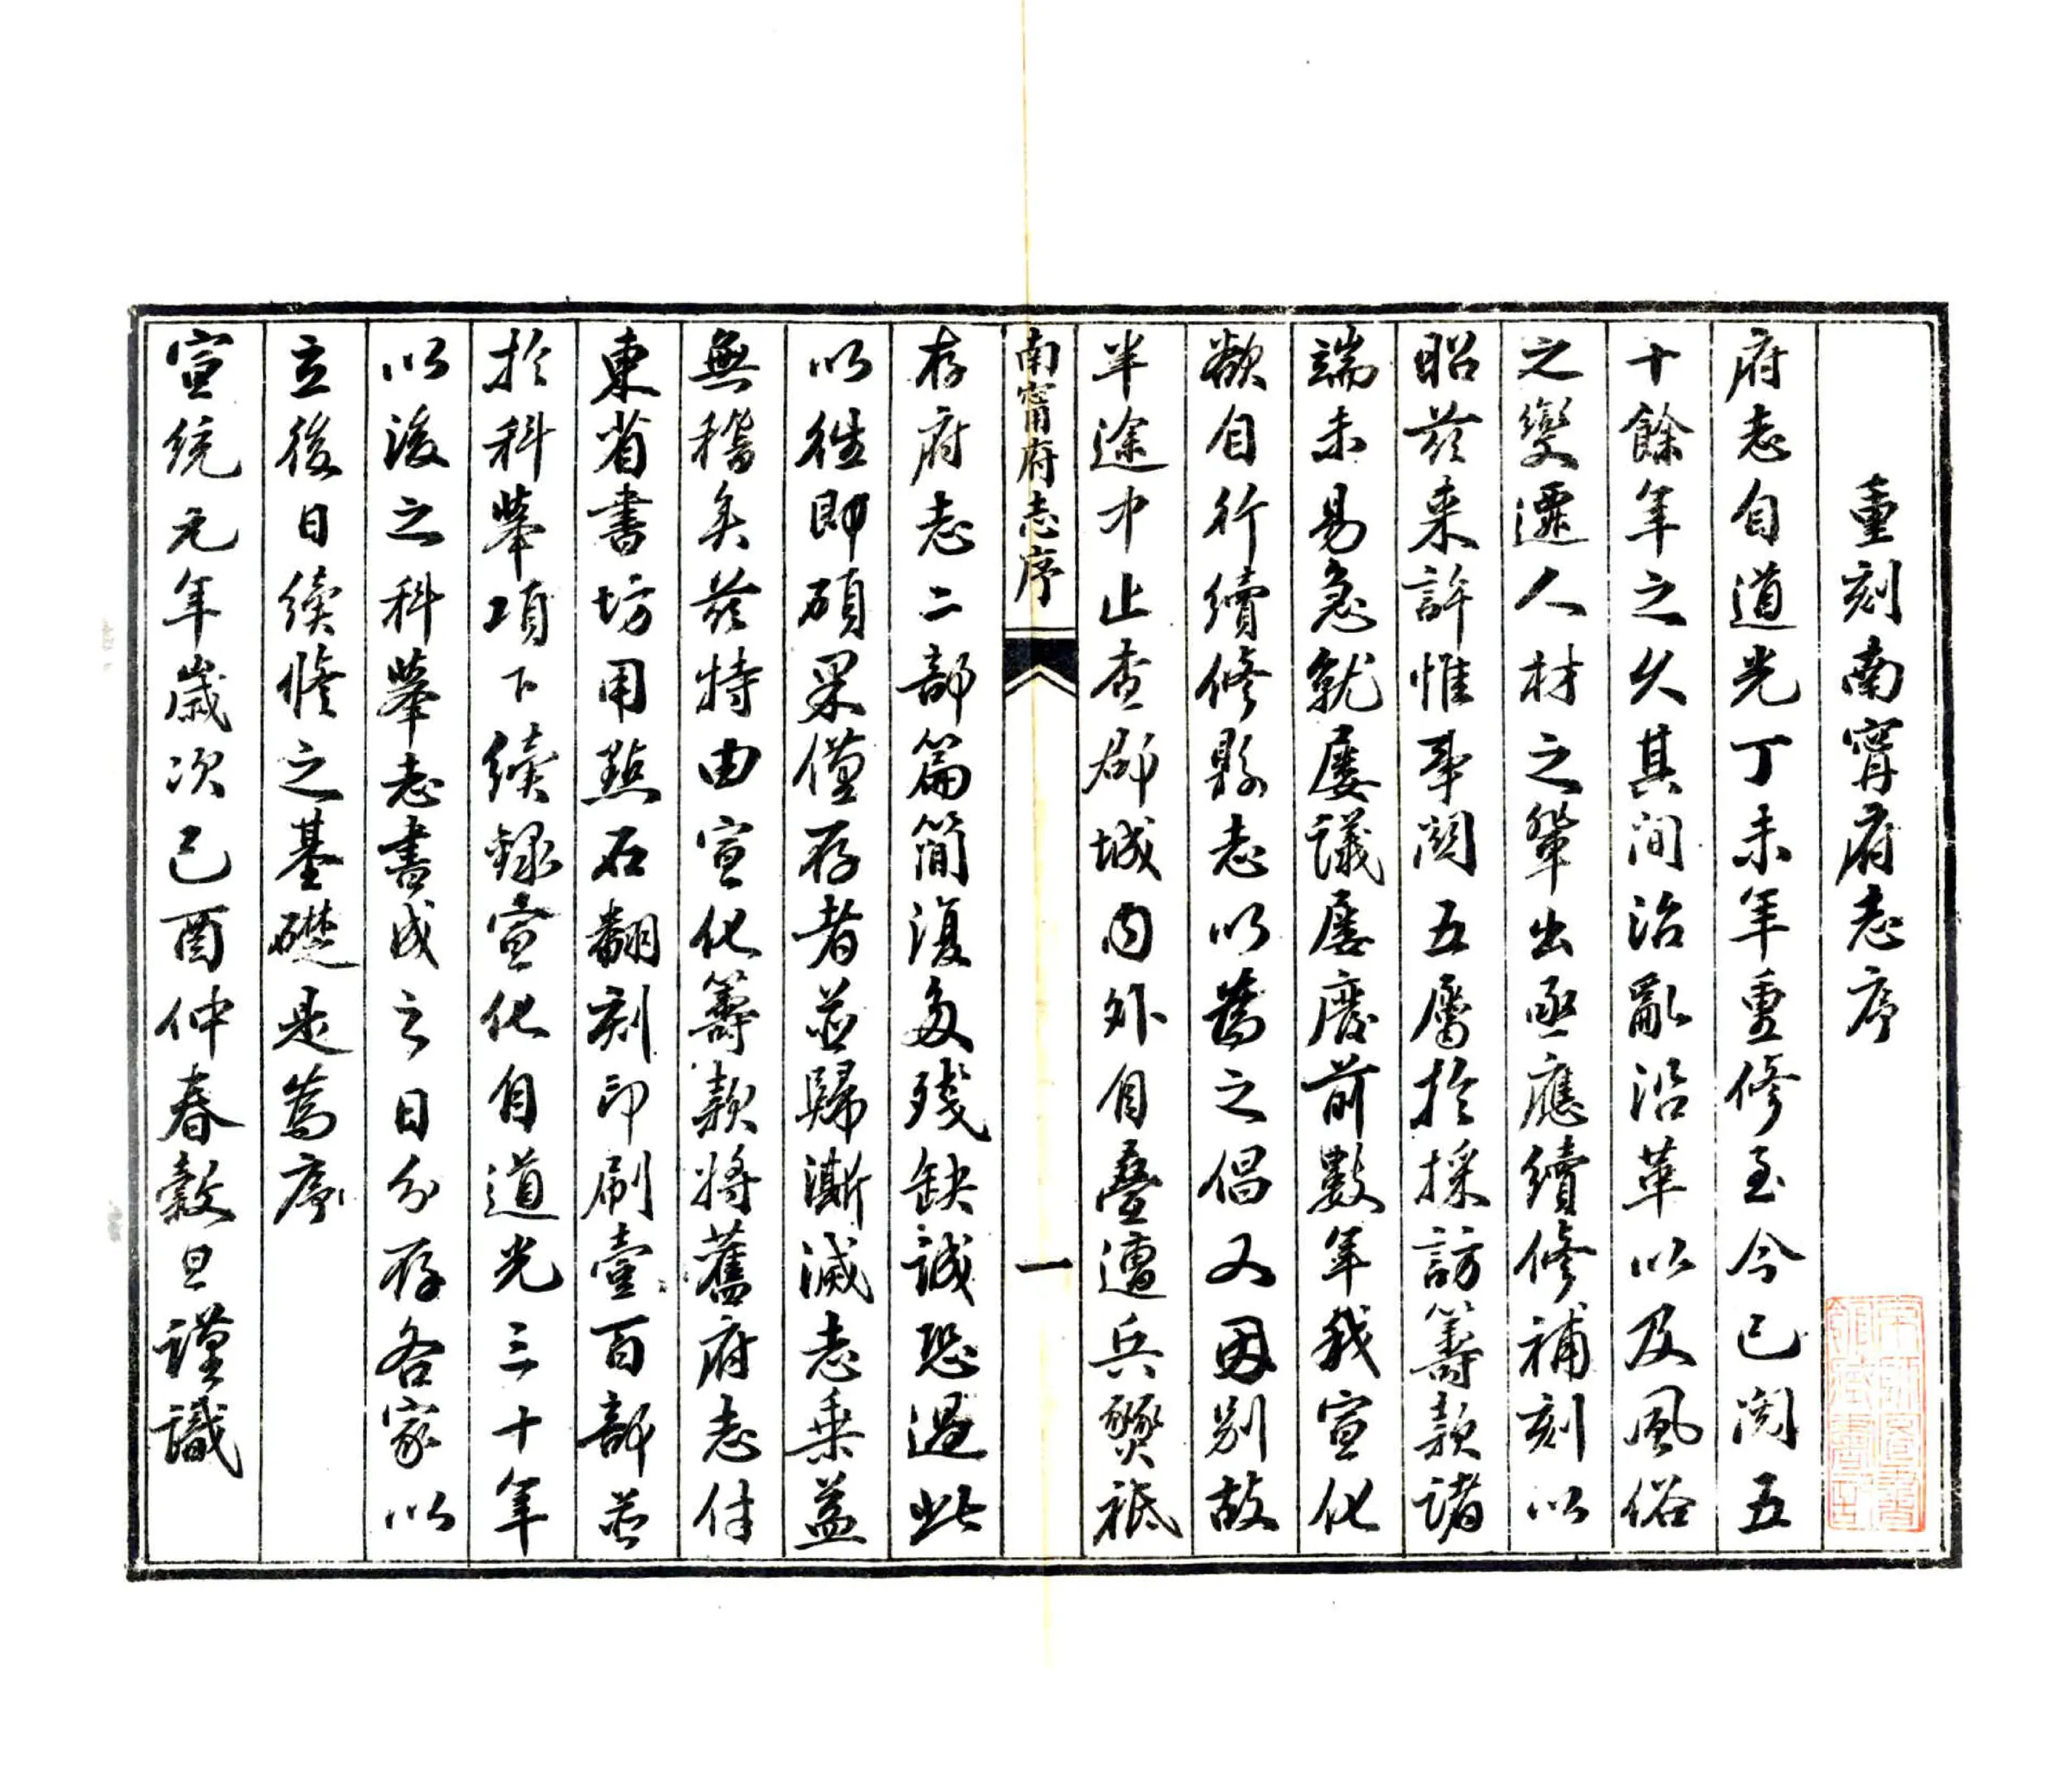 重刻南甯府志序
府志自道光丁未年重修至今已閱五
十餘年之久其间治亂沿革以及風俗
之變遷人材之輩出亟應續修補刻以
昭茲来許惟事関五屬於採訪籌款諸
端未易急就屡議屡廢前數年我宣化
欲自行續修縣志以為之倡又因别故
半途中止查郡城内外自叠遭兵燹祗
南甯府志序
一
存府志二部篇簡復多残缺誠恐過此
以徃即碩果僅存者並歸漸滅志乗益
無稽矣茲特由宣化籌款將舊府志付
東省書坊用點石翻刻印刷壹百部並
於科舉項下續録宣化自道光三十年
以後之科舉志書成之日分存各家以
立後日续修之基礎是為序
宣統元年歲次己酉仲春穀旦謹識